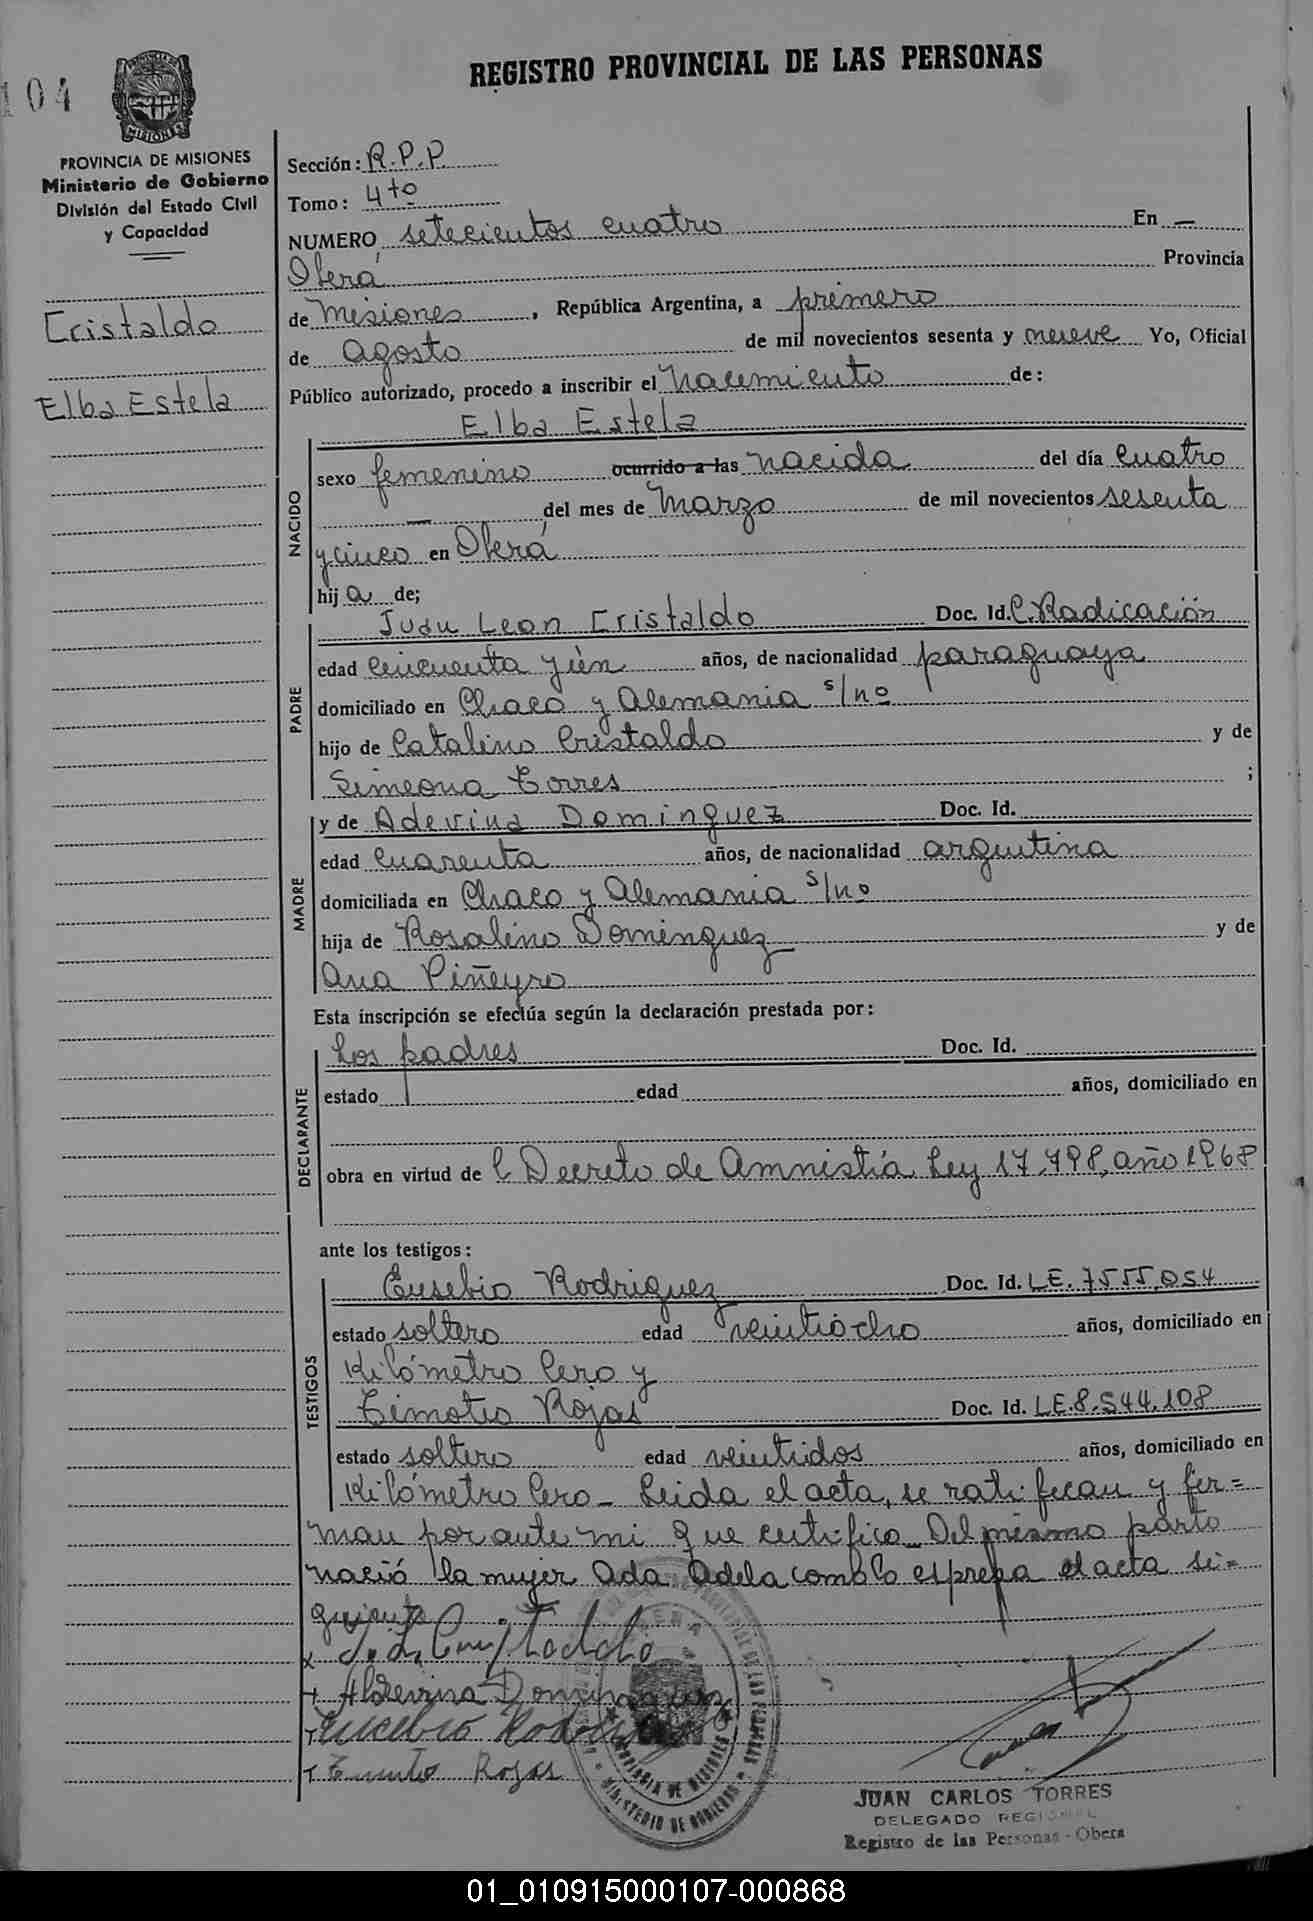 REGISTRO PROVINCIAL DE LAS PERSONAS
104
MISIONES
PROVINCIA DE MISIONES
Ministerio de Gobierno
División del Estado Civil
y Capacidad
Cristaldo
Elba Estela
Sección: R.P.P.
Tomo: 4to
NUMERO setecientos cuatro En —
Oberá Provincia
de Misiones, República Argentina, a primero
de Agosto de mil novecientos sesenta y nueve Yo, Oficial
Público autorizado, procedo a inscribir el Nacimiento de:
Elba Estela
NACIDO
sexo femenino ocurrido a las nacida del día cuatro
— del mes de Marzo de mil novecientos sesenta
y cinco en Oberá
hija de;
PADRE
Juan Leon Cristaldo Doc. Id. C. Radicación
edad cincuenta y un años, de nacionalidad paraguaya
domiciliado en Chaco y Alemania s/no
hijo de Catalino Cristaldo y de
Simeona Torres ;
MADRE
y de Adevina Dominguez Doc. Id.
edad cuarenta años, de nacionalidad argentina
domiciliada en Chaco y Alemania s/no
hija de Rosalino Dominguez y de
Ana Piñeyro
Esta inscripción se efectúa según la declaración prestada por:
DECLARANTE
Los padres Doc. Id.
estado edad años, domiciliado en
obra en virtud de l Decreto de Amnistía Ley 17.798, año 1968
ante los testigos:
TESTIGOS
Eusebio Rodriguez Doc. Id. LE. 7555.054
estado soltero edad veintiocho años, domiciliado en
Kilómetro Cero y
Timoteo Rojas Doc. Id. LE. 8.544.108
estado soltero edad veintidos años, domiciliado en
Kilómetro Cero – Leida el acta, se ratifican y fir=
man por ante mi que certifico – Del mismo parto
nació la mujer Ada Adela como lo expresa el acta si=
guiente
Dominguez
Rodriguez
Rojas
PROVINCIA DE MISIONES
MINISTERIO DE GOBIERNO
JUAN CARLOS TORRES
DELEGADO REGIONAL
Registro de las Personas - Obera
01_010915000107-000868